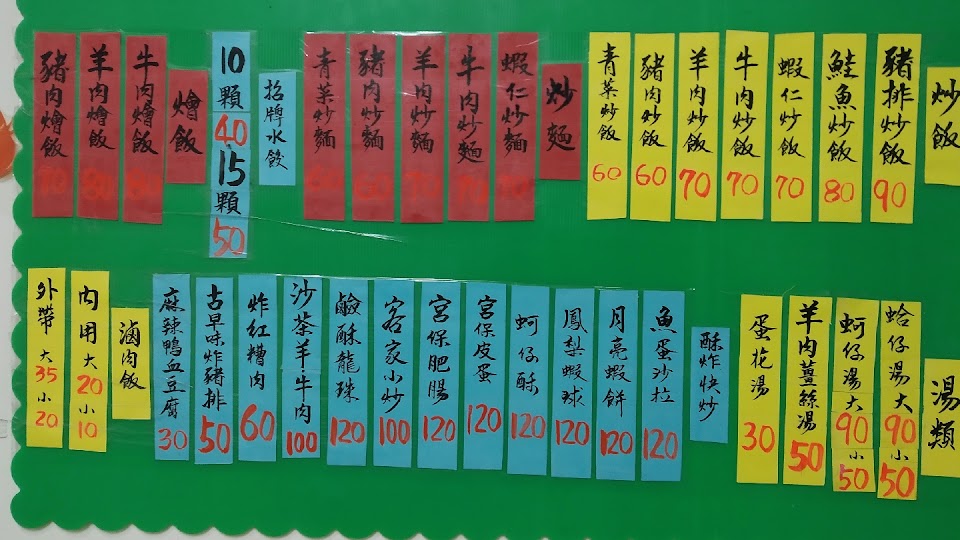 炒飯
豬排炒飯 90
鮭魚炒飯 80
蝦仁炒飯 70
牛肉炒飯 70
羊肉炒飯 70
豬肉炒飯 60
青菜炒飯 60
炒麵
蝦仁炒麵
牛肉炒麵 70
羊肉炒麵 70
豬肉炒麵 60
青菜炒麵
招牌水餃
10顆 40
15顆 50
燴飯
牛肉燴飯
羊肉燴飯 80
豬肉燴飯 70
湯類
蛤仔湯 大 90 小 50
蚵仔湯 大 90 小 50
羊肉薑絲湯 50
蛋花湯 30
酥炸快炒
魚蛋沙拉 120
月亮蝦餅 120
鳳梨蝦球 120
蚵仔酥 120
宮保皮蛋 120
宮保肥腸 120
客家小炒 100
鹼酥龍珠 120
沙茶羊牛肉 100
炸紅糟肉 60
古早味炸豬排 50
麻辣鴨血豆腐 30
滷肉飯
內用 大 20 小 10
外帶 大 35 小 20